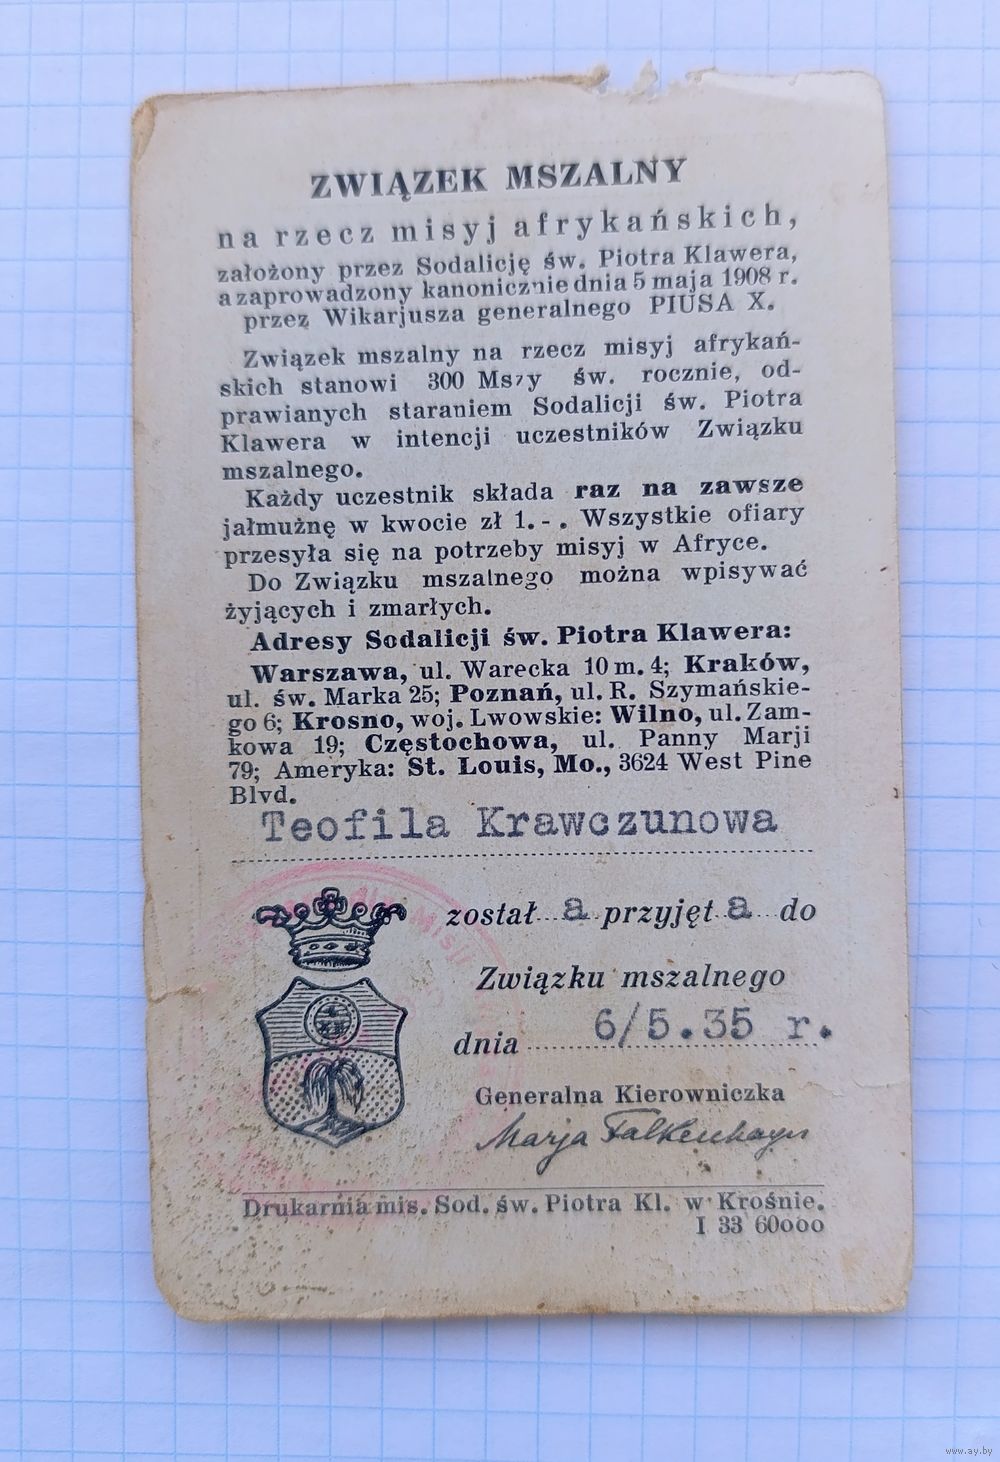 ZWIĄZEK MSZALNY
na rzecz misyj afrykańskich,
założony przez Sodalicję św. Piotra Klawera,
a zaprowadzony kanonicznie dnia 5 maja 1908 r.
przez Wikarjusza generalnego PIUSA X.
Związek mszalny na rzecz misyj afrykań-
skich stanowi 300 Mszy św. rocznie, od-
prawianych staraniem Sodalicji św. Piotra
Klawera w intencji uczestników Związku
mszalnego.
Każdy uczestnik składa raz na zawsze
jałmużnę w kwocie zł 1.-. Wszystkie ofiary
przesyła się na potrzeby misyj w Afryce.
Do Związku mszalnego można wpisywać
żyjących i zmarłych.
Adresy Sodalicji św. Piotra Klawera:
Warszawa, ul. Warecka 10 m. 4; Kraków,
ul. św. Marka 25; Poznań, ul. R. Szymańskie-
go 6; Krosno, woj. Lwowskie: Wilno, ul. Zam-
kowa 19; Częstochowa, ul. Panny Marji
79; Ameryka: St. Louis, Mo., 3624 West Pine
Blvd.
Teofila Krawczunowa
został a przyjęt a do
Związku mszalnego
dnia 6/5.35 r.
Generalna Kierowniczka
Marja Falkenhayn
Drukarnia mis. Sod. św. Piotra Kl. w Krośnie.
I 33 60000
www.ay.by